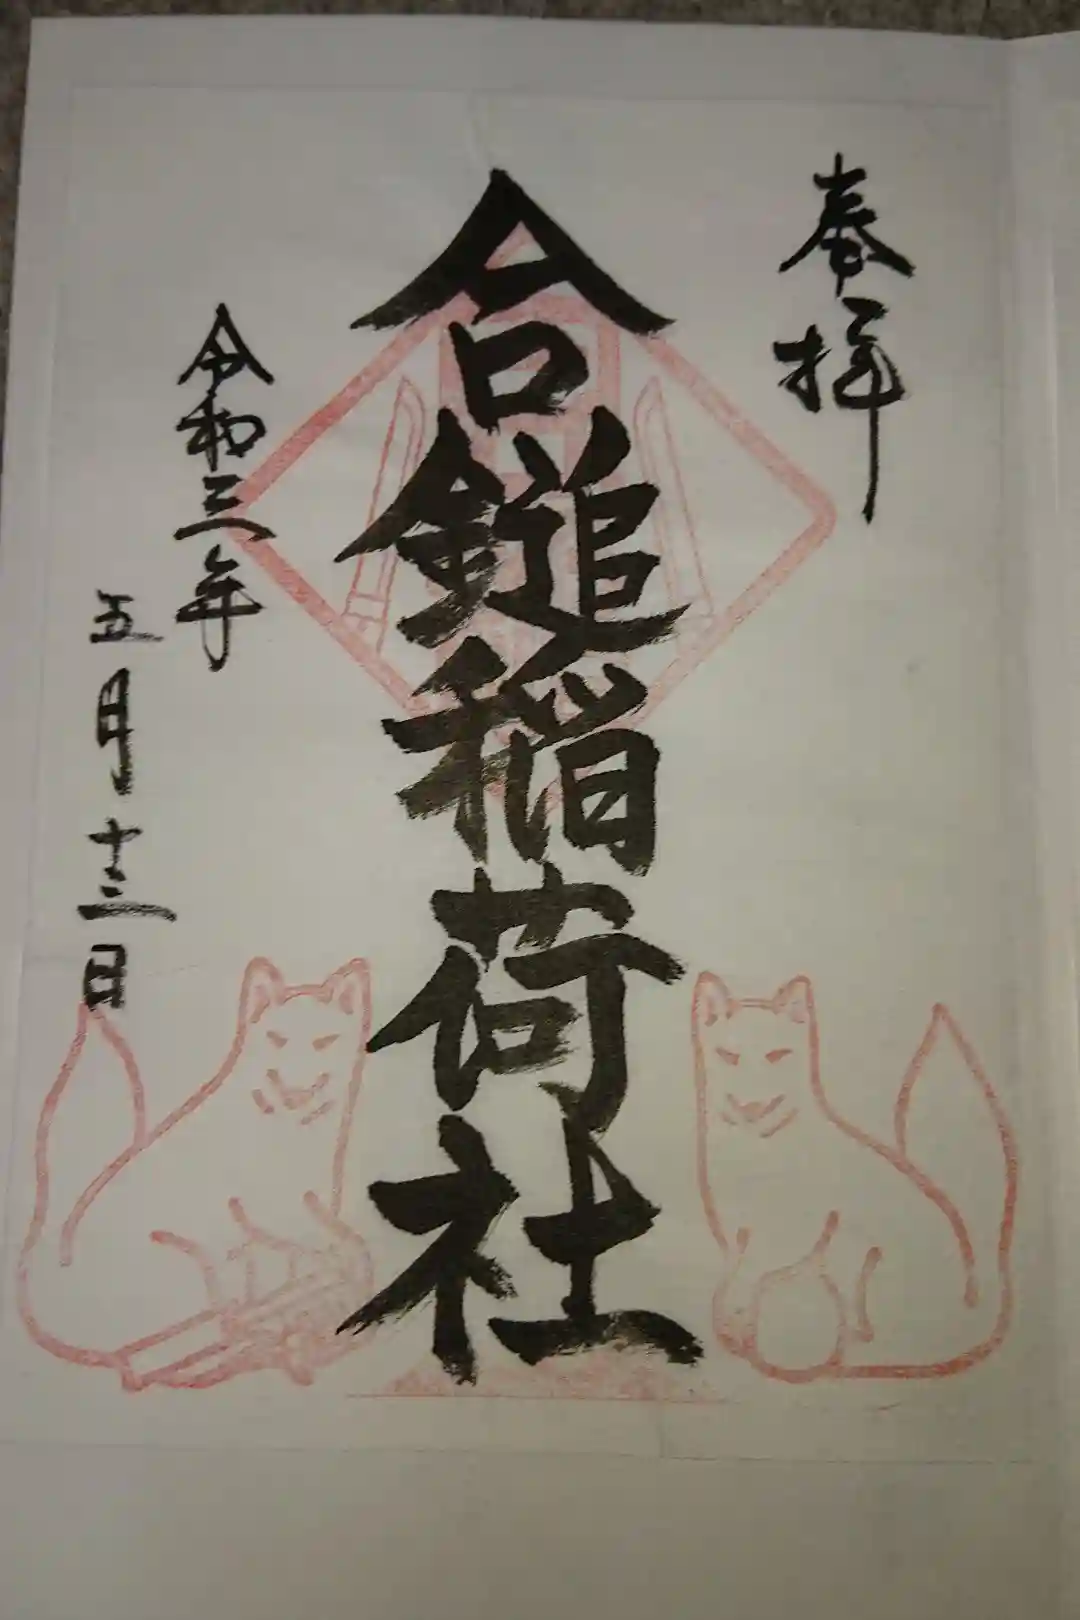 奉拝
合鎚稲荷社
令和三年
五月十三日